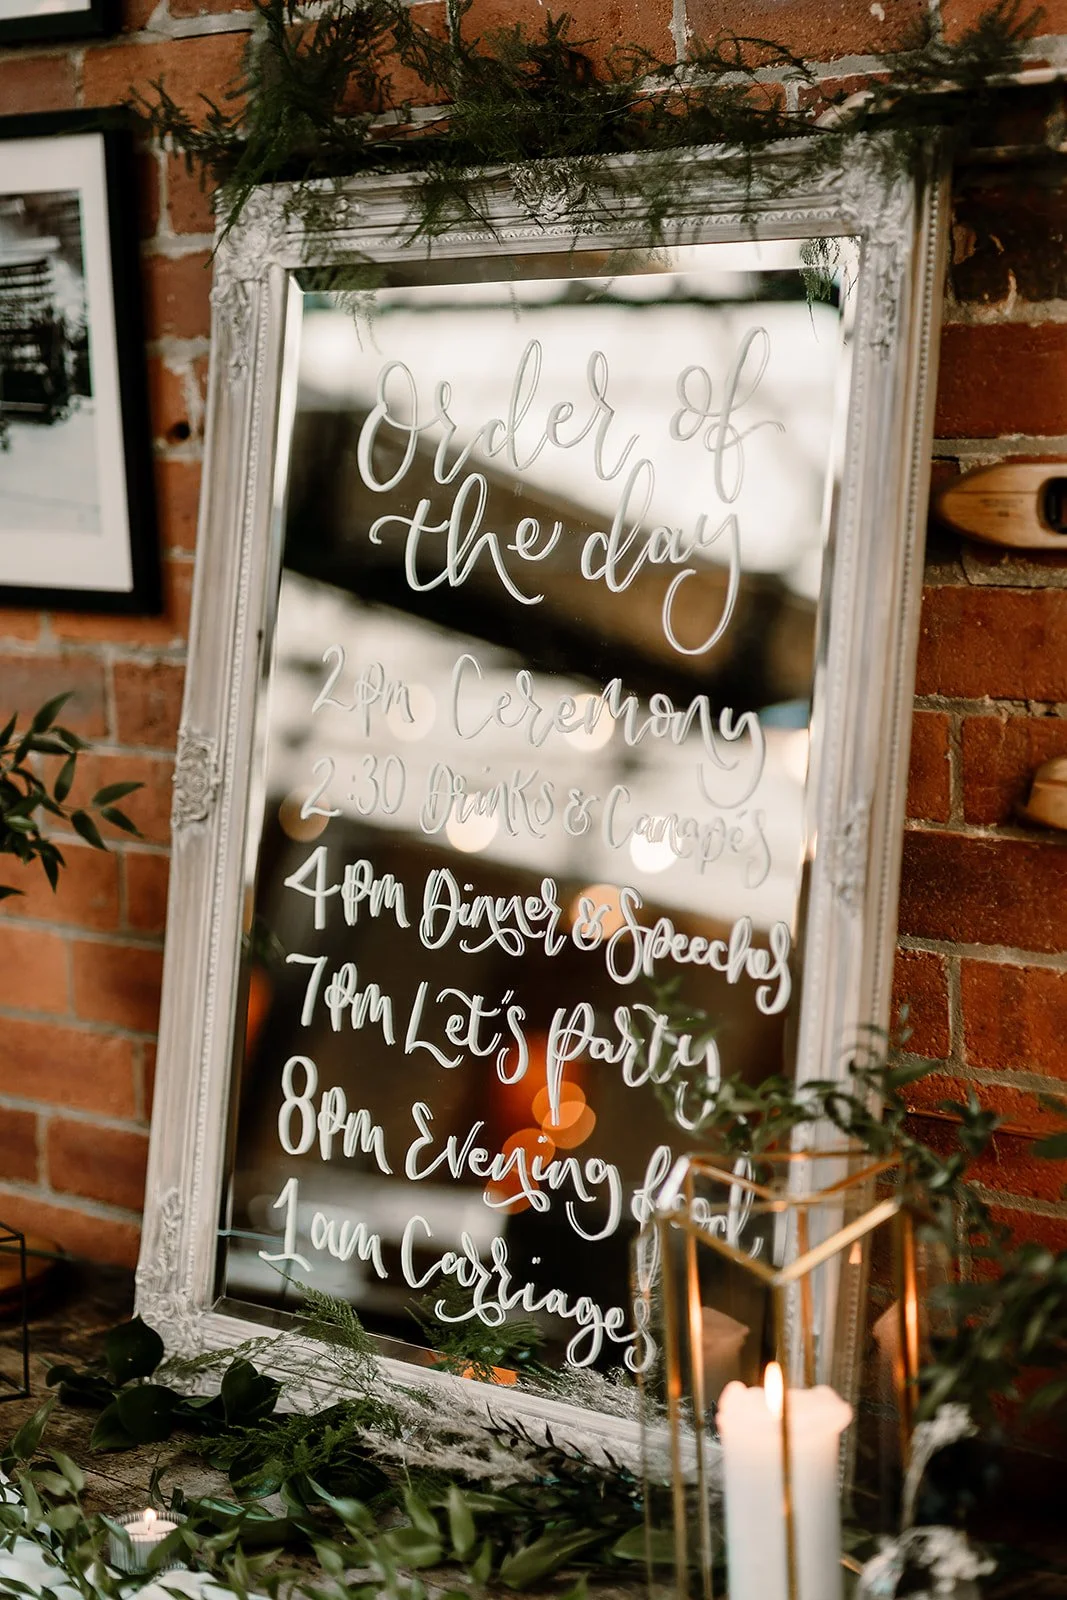 Order of
the day
2pm Ceremony
2:30 Drinks & Canapés
4pm Dinner & Speeches
7pm Let's party
8pm Evening food
1am Carriages